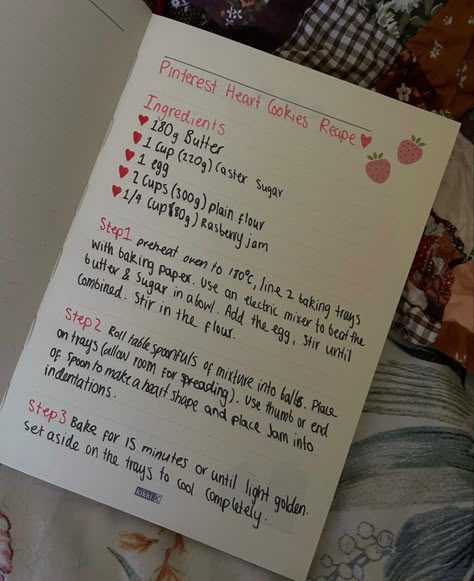 Pinterest Heart Cookies Recipe
Ingredients
180g Butter
1 Cup (220g) Caster Sugar
1 egg
2 Cups (300g) plain flour
1/4 Cup (80g) Rasberry jam
Step 1 preheat oven to 180°C, line 2 baking trays
with baking paper. Use an electric mixer to beat the
butter & Sugar in a bowl. Add the egg, Stir until
Combined. Stir in the flour.
Step 2 Roll tablespoonfuls of mixture into balls. Place
on trays (allow room for spreading). Use thumb or end
of spoon to make a heart shape and place Jam into
indentations.
Step 3 Bake for 15 minutes or until light golden.
Set aside on the trays to Cool Completely.